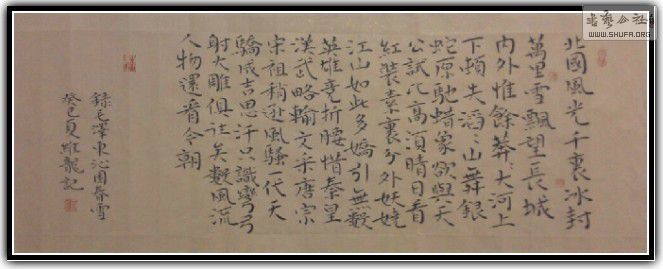 北國風光千裏冰封
萬里雪飄望長城
內外惟餘莽々大河上
下頓失滔々山舞銀
蛇原馳蜡象欲與天
公試比高須晴日看
紅裝素裹分外妖嬈
江山如此多嬌引無數
英雄竟折腰惜秦皇
漢武略輸文采唐宗
宋祖稍遜風騷一代天
驕成吉思汗只識彎弓
射大雕俱往矣數風流
人物還看今朝
錄毛澤東沁園春雪
癸巳夏維龍記
書藝公社
WWW.SHUFA.ORG